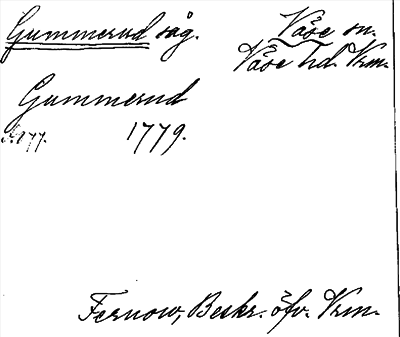 Gummerud såg. Väse sn.
Väse hd. Vrm.
Gummerud
1779.
Fernow, Beskr. öfv. Vrm.